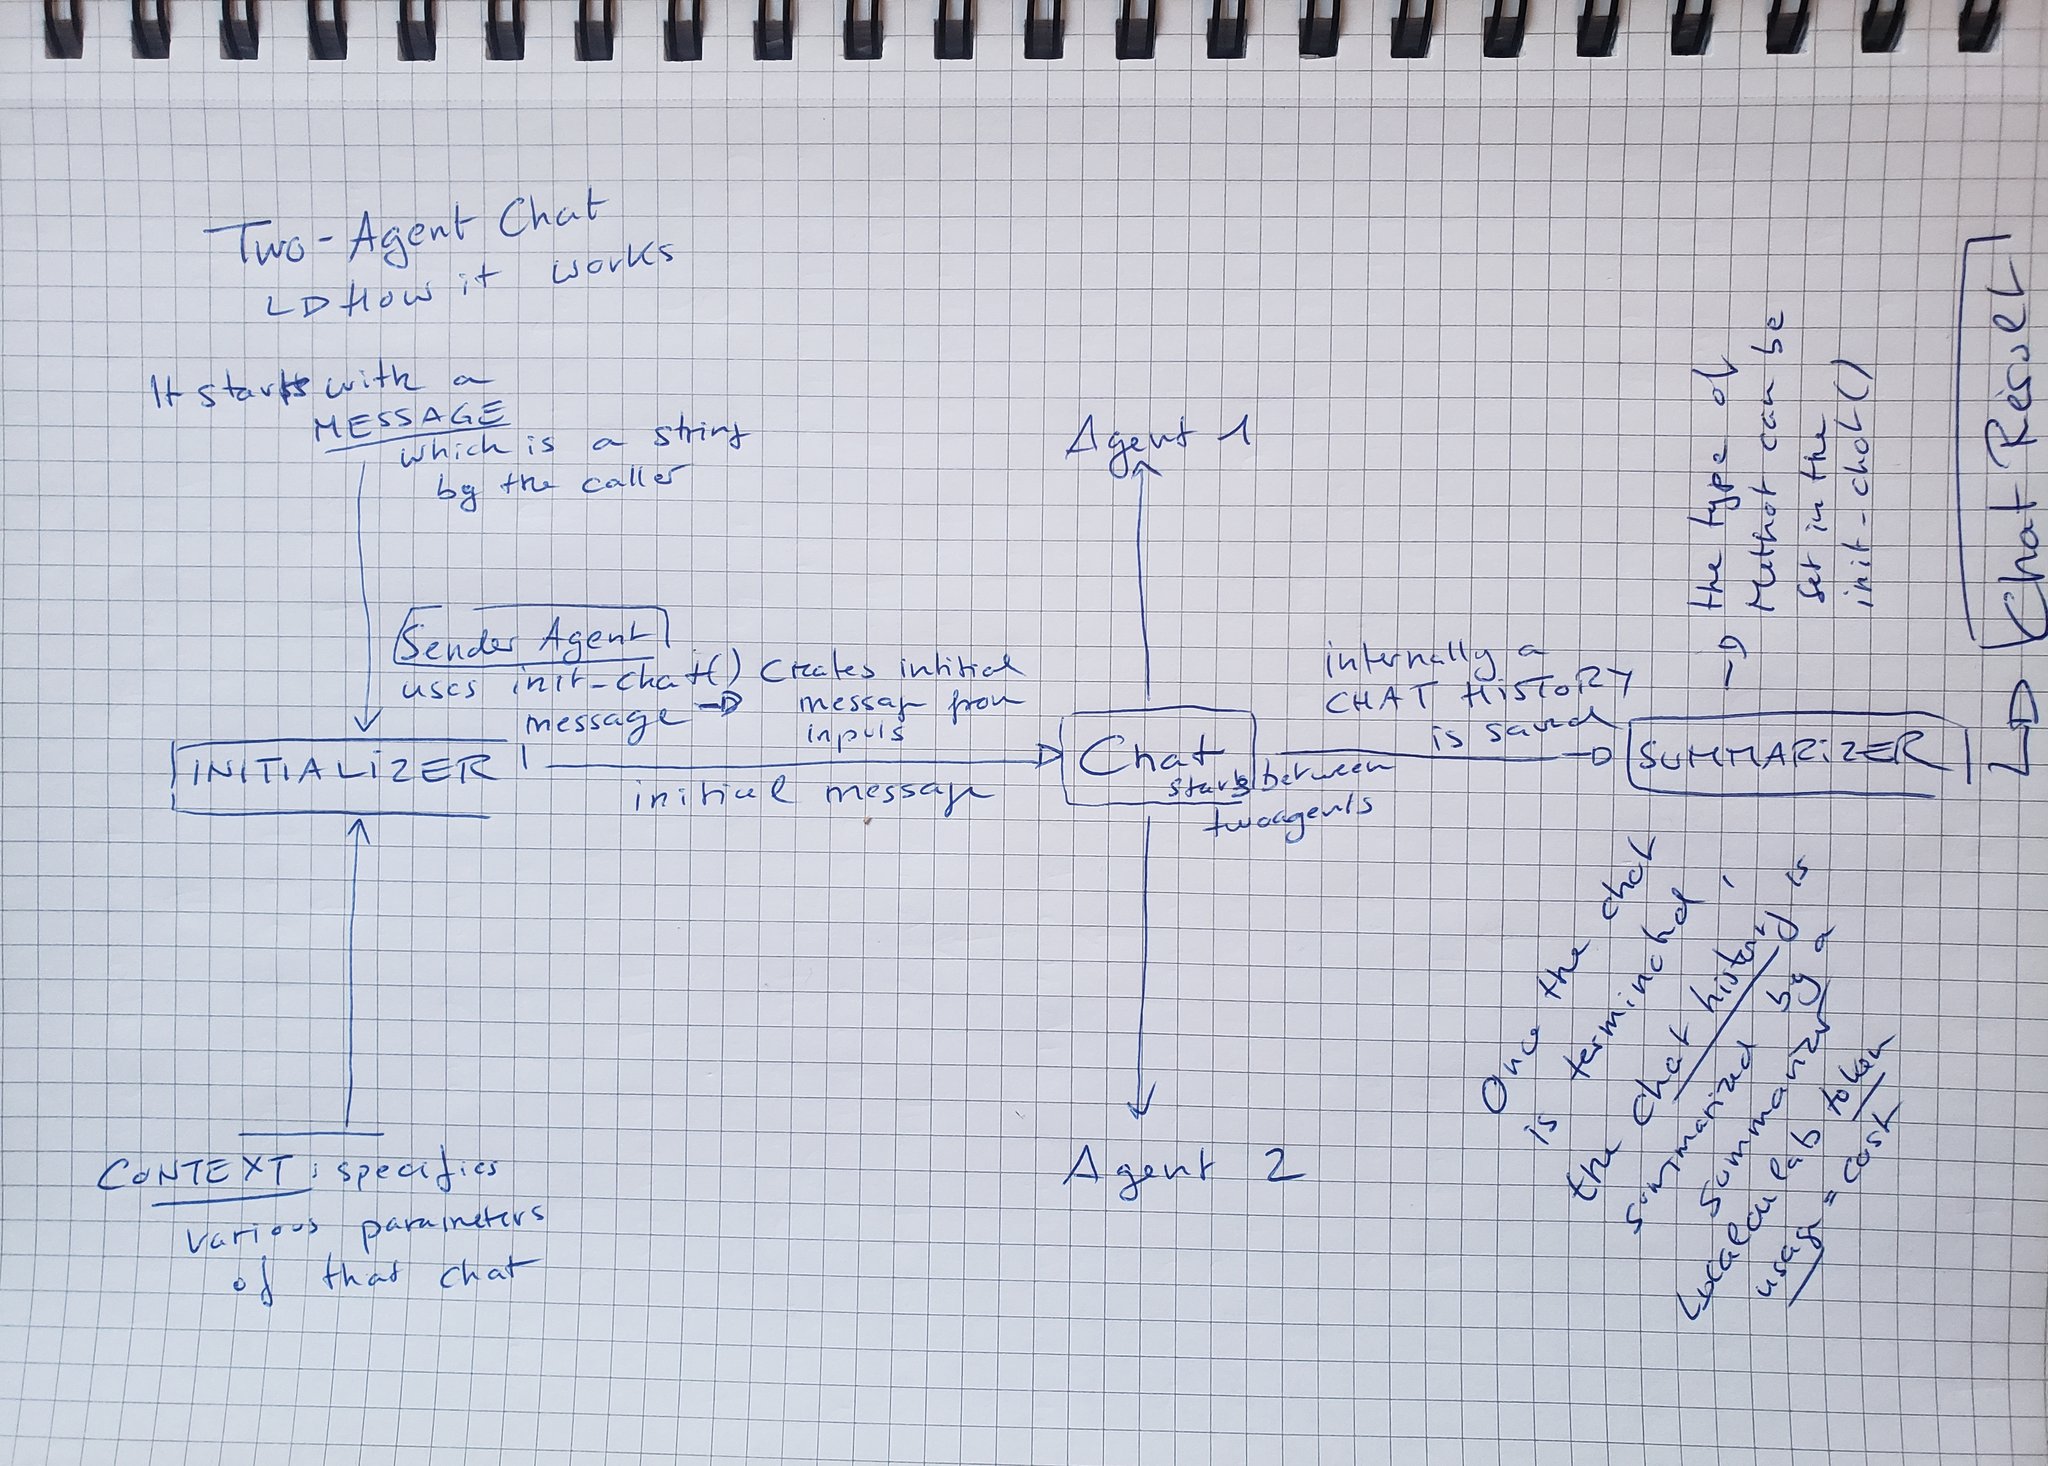 Two-Agent Chat
How it works
It starts with a
MESSAGE
which is a string
by the caller
Sender Agent
uses init-chat()
message
Creates intitial
message from
inputs
INITIALIZER
initial message
CONTEXT: specifies
various parameters
of that chat
Agent 1
Chat
starts between
two agents
Agent 2
internally a
CHAT HISTORY
is saved
SUMMARIZER
the type of
Method can be
set in the
init-chat()
Once the chat
is terminated,
the chat history is
summarized by a
summarizer
token
usage = cost
Chat